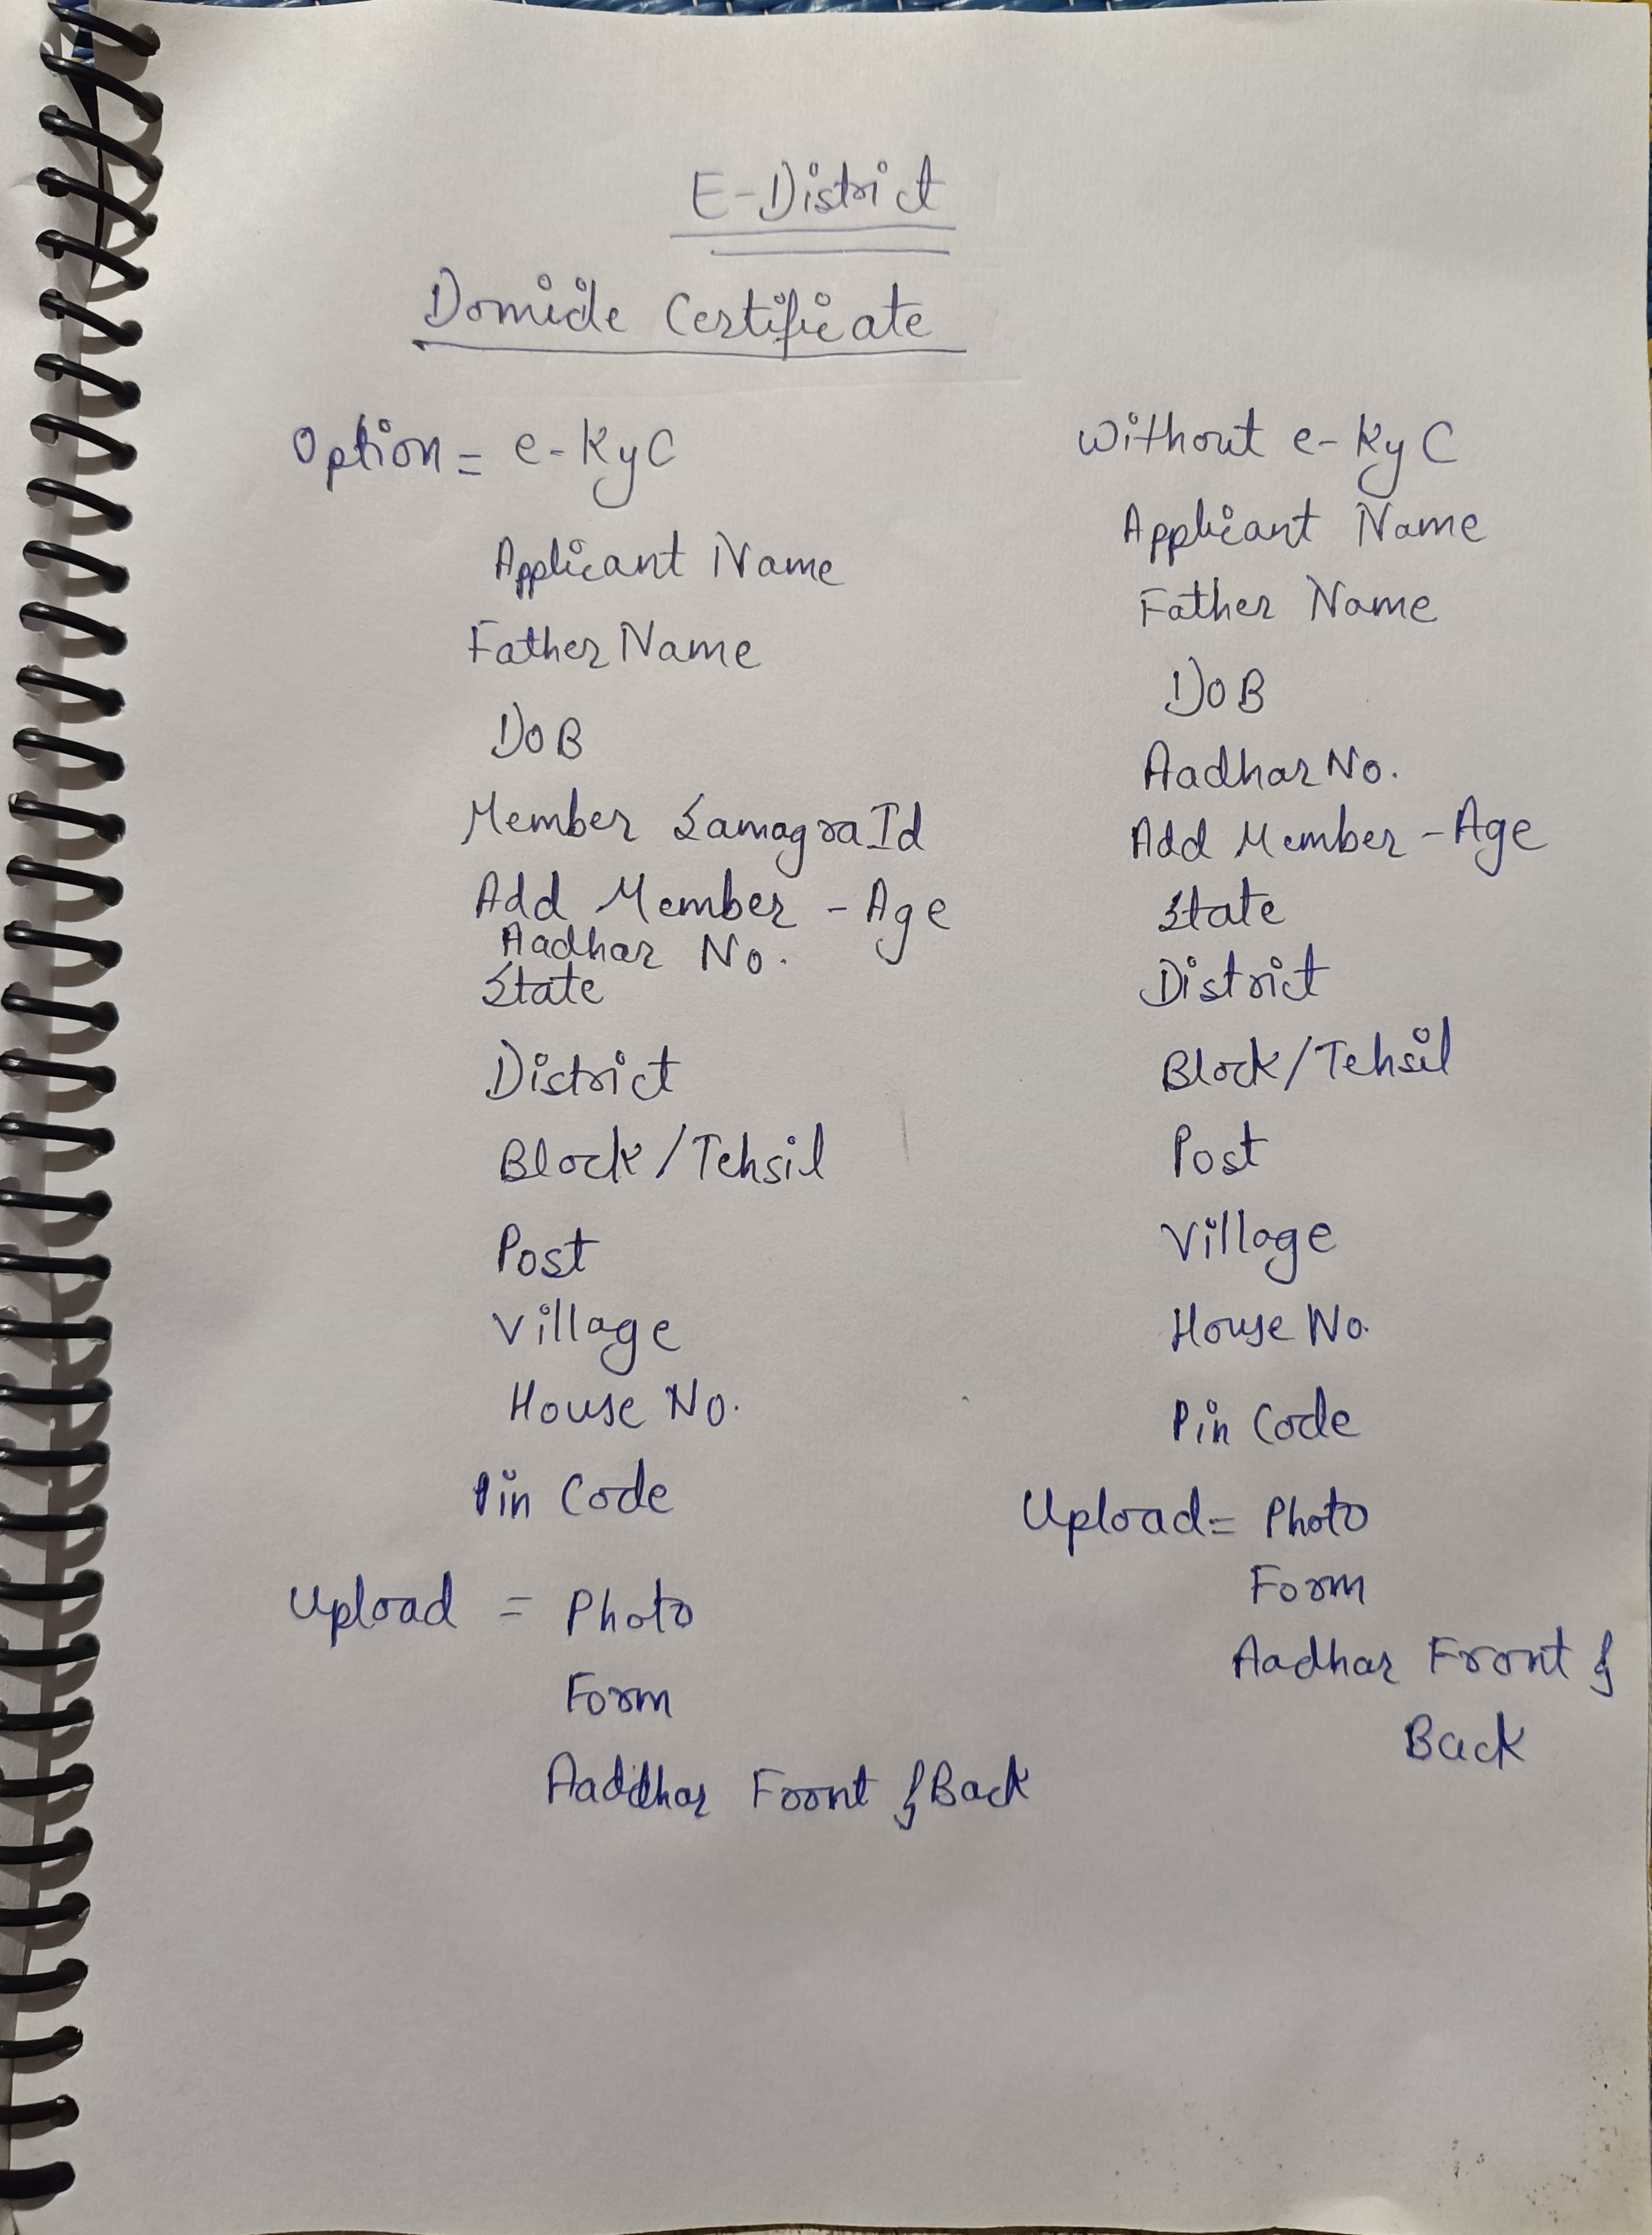 E-District
Domicile Certificate
Option = e-KyC
Applicant Name
Father Name
DoB
Member Samagra Id
Add Member - Age
Aadhar No.
State
District
Block/Tehsil
Post
Village
House No.
Pin Code
Upload = Photo
Form
Aaddhar Front & Back
Without e-KyC
Applicant Name
Father Name
DoB
Aadhar No.
Add Member - Age
State
District
Block/Tehsil
Post
Village
House No.
Pin Code
Upload = Photo
Form
Aadhar Front &
Back